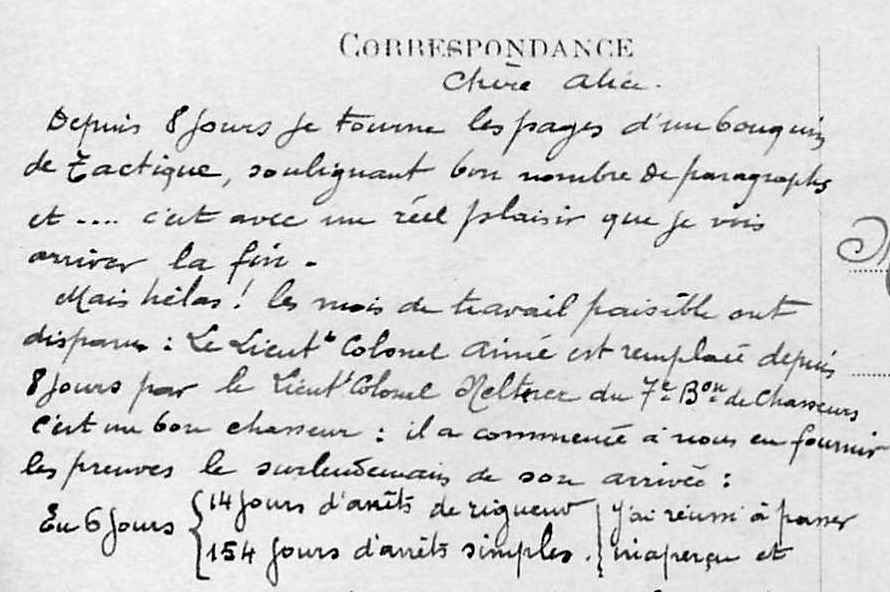 CORRESPONDANCE
Chère Alice.
Depuis 8 jours je tourne les pages d'un bouquin
de Tactique, soulignant bon nombre de paragraphes
et .... c'est avec un réel plaisir que je vois
arriver la fin.
Mais hélas ! les mois de travail paisible ont
disparus : Le Lieut^t Colonel Aimé est remplacé depuis
8 jours par le Lieut^t Colonel du 7^e B^on de Chasseurs
C'est un bon chasseur : il a commencé à nous en fournir
les preuves le surlendemain de son arrivée :
En 6 jours { 14 jours d'arrêts de rigueur } j'ai réussi à passer
154 jours d'arrêts simples. } inaperçu et